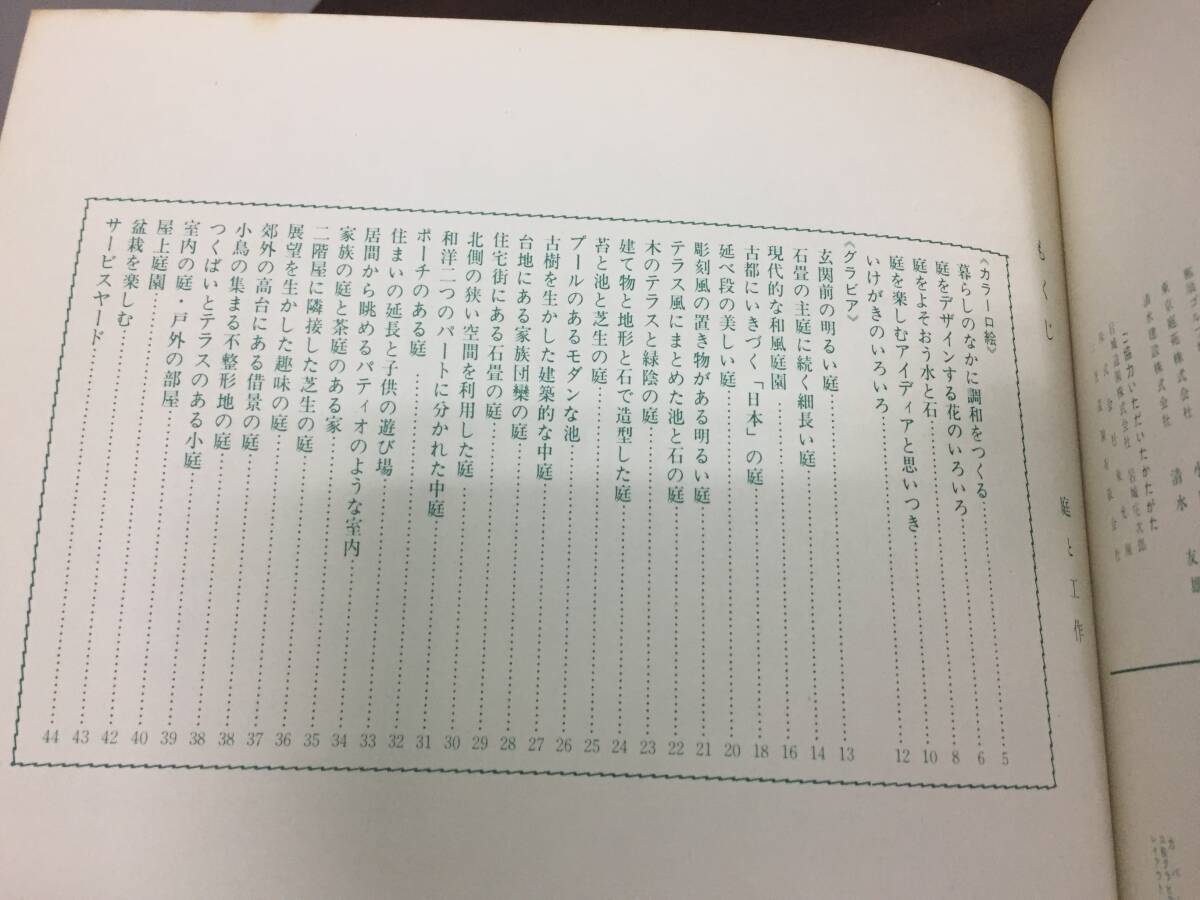 清水建設株式会社
ご協力いただいたかたがた
もくじ
庭と工作
《カラー口絵》
暮らしのなかに調和をつくる……5
庭をデザインする花のいろいろ……6
庭をよそおう水と石……8
庭を楽しむアイディアと思いつき……10
いけがきのいろいろ……12
《グラビア》
玄関前の明るい庭……13
石畳の主庭に続く細長い庭……14
現代的な和風庭園……16
古都にいきづく「日本」の庭……18
延べ段の美しい庭……20
彫刻風の置き物がある明るい庭……21
テラス風にまとめた池と石の庭……22
木のテラスと緑陰の庭……23
建て物と地形と石で造型した庭……24
苔と池と芝生の庭……25
プールのあるモダンな池……26
古樹を生かした建築的な中庭……27
台地にある家族団欒の庭……28
住宅街にある石畳の庭……29
北側の狭い空間を利用した庭……30
和洋二つのパートに分かれた中庭……31
ポーチのある庭……32
住まいの延長と子供の遊び場……33
居間から眺めるパティオのような室内……34
家族の庭と茶庭のある家……35
二階屋に隣接した芝生の庭……36
展望を生かした趣味の庭……37
郊外の高台にある借景の庭……38
小鳥の集まる不整形地の庭……38
つくばいとテラスのある小庭……39
室内の庭・戸外の部屋……40
屋上庭園……42
盆栽を楽しむ……43
サービスヤード……44